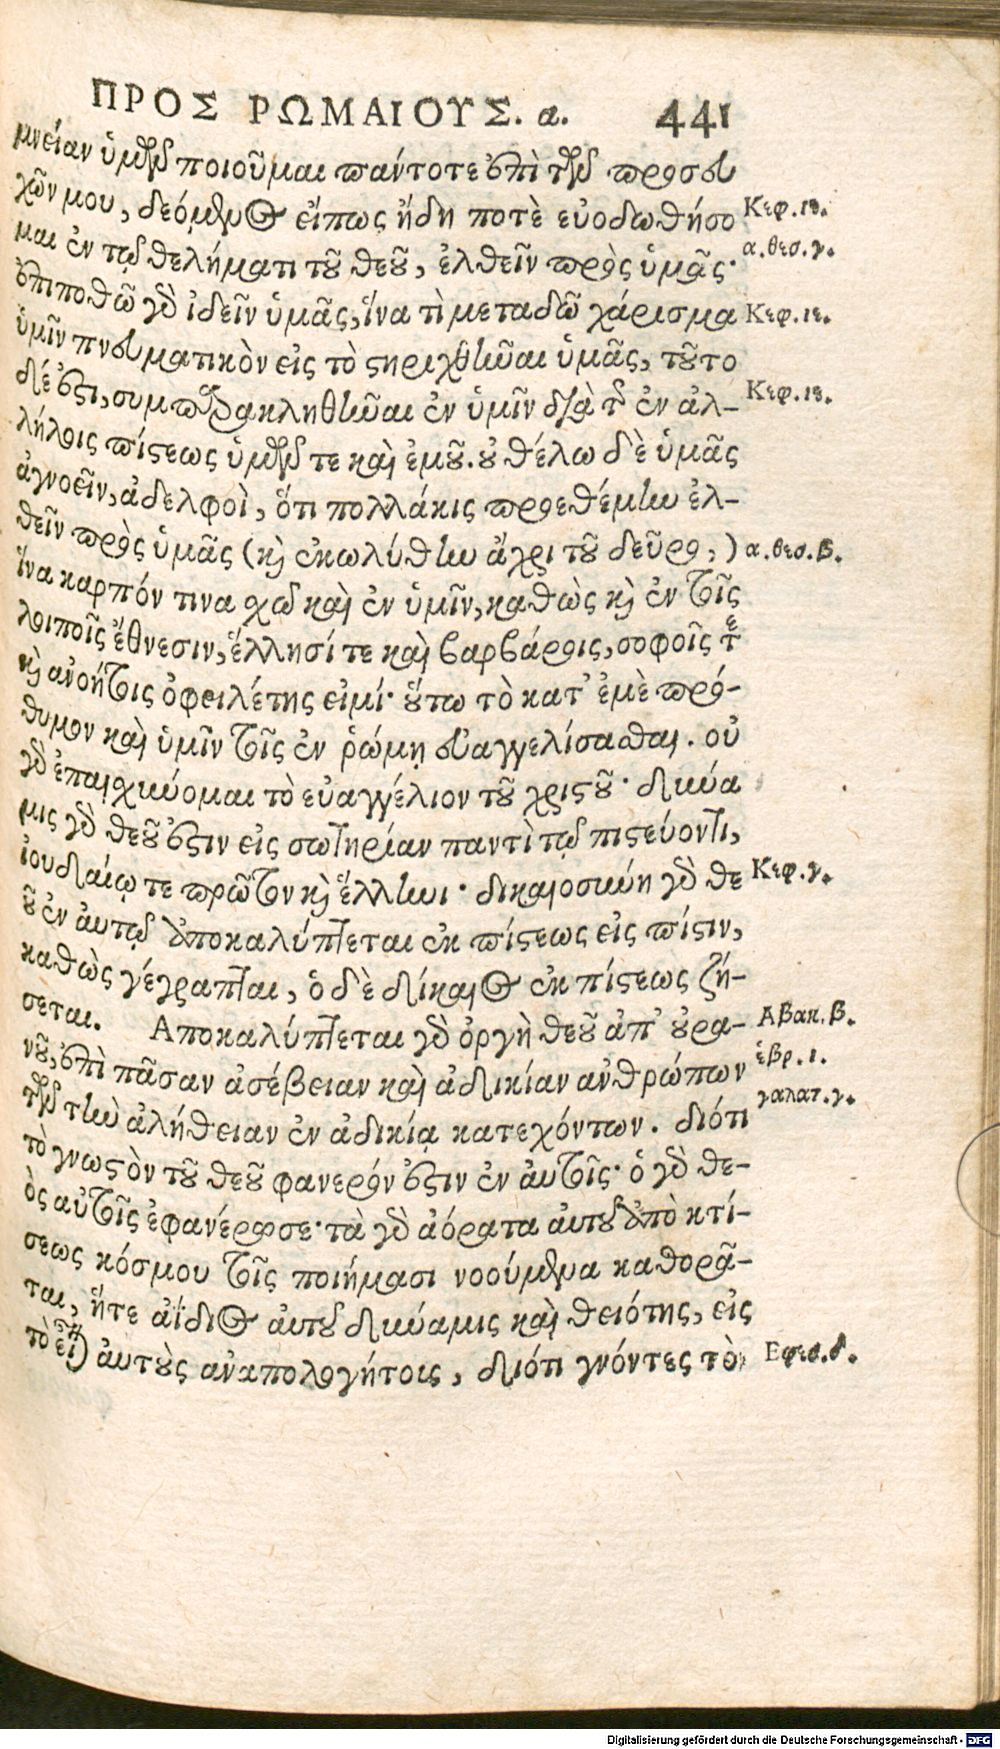 ΠΡΟΣ ΡΩΜΑΙΟΥΣ. α. 441
μνείαν ὑμῶν ποιοῦμαι πάντοτε ἐπὶ τῶν προσευ
χῶν μου, δεόμενος εἴπως ἤδη ποτὲ εὐοδωθήσο
μαι ἐν τῷ θελήματι τοῦ θεοῦ, ἐλθεῖν πρὸς ὑμᾶς·
ἐπιποθῶ γὸ ἰδεῖν ὑμᾶς, ἵνα τὶ μεταδῶ χάρισμα
ὑμῖν πνευματικὸν εἰς τὸ στηριχθῆναι ὑμᾶς, τοῦτο
δέ ἐστι, συμπαρακληθῆναι ἐν ὑμῖν διὰ τῆς ἐν ἀλ-
λήλοις πίστεως ὑμῶν τε καὶ ἐμοῦ. οὐ θέλω δὲ ὑμᾶς
ἀγνοεῖν, ἀδελφοὶ, ὅτι πολλάκις προεθέμην ἐλ-
θεῖν πρὸς ὑμᾶς (καὶ ἐκωλύθην ἄχρι τοῦ δεῦρο,)
ἵνα καρπόν τινα χῶ καὶ ἐν ὑμῖν, καθὼς καὶ ἐν τοῖς
λοιποῖς ἔθνεσιν, ἕλλησί τε καὶ βαρβάροις, σοφοῖς τε
καὶ ἀνοήτοις ὀφειλέτης εἰμί· οὕτω τὸ κατ' ἐμὲ πρό-
θυμον καὶ ὑμῖν τοῖς ἐν ῥώμῃ εὐαγγελίσασθαι. οὐ
γὸ ἐπαισχύνομαι τὸ εὐαγγέλιον τοῦ χριστοῦ· δύνα
μις γὸ θεοῦ ἐστιν εἰς σωτηρίαν παντὶ τῷ πιστεύοντι,
ἰουδαίῳ τε πρῶτον καὶ ἕλληνι· δικαιοσύνη γὸ θε
οῦ ἐν αὐτῷ ἀποκαλύπτεται ἐκ πίστεως εἰς πίστιν,
καθὼς γέγραπται, ὁ δὲ δίκαιος ἐκ πίστεως ζή-
σεται. Αποκαλύπτεται γὸ ὀργὴ θεοῦ ἀπ' οὐρα-
νοῦ, ἐπὶ πᾶσαν ἀσέβειαν καὶ ἀδικίαν ἀνθρώπων
τῶν τὴν ἀλήθειαν ἐν ἀδικίᾳ κατεχόντων. διότι
τὸ γνωστὸν τοῦ θεοῦ φανερόν ἐστιν ἐν αὐτοῖς· ὁ γὸ θε-
ὸς αὐτοῖς ἐφανέρωσε· τὰ γὸ ἀόρατα αὐτοῦ ἀπὸ κτί-
σεως κόσμου τοῖς ποιήμασι νοούμενα καθορᾶ-
ται, ἥτε ἀΐδιος αὐτοῦ δύναμις καὶ θειότης, εἰς
τὸ εἶναι αὐτοὺς ἀναπολογήτοις, διότι γνόντες τὸν
Κεφ. ιε.
α. θεσ. γ.
Κεφ. ιε.
Κεφ. ιε.
α. θεσ. β.
Κεφ. γ.
Αβακ. β.
ἑβρ. ι.
γαλατ. γ.
Εφεσ. δ.
Digitalisierung gefördert durch die Deutsche Forschungsgemeinschaft - DFG